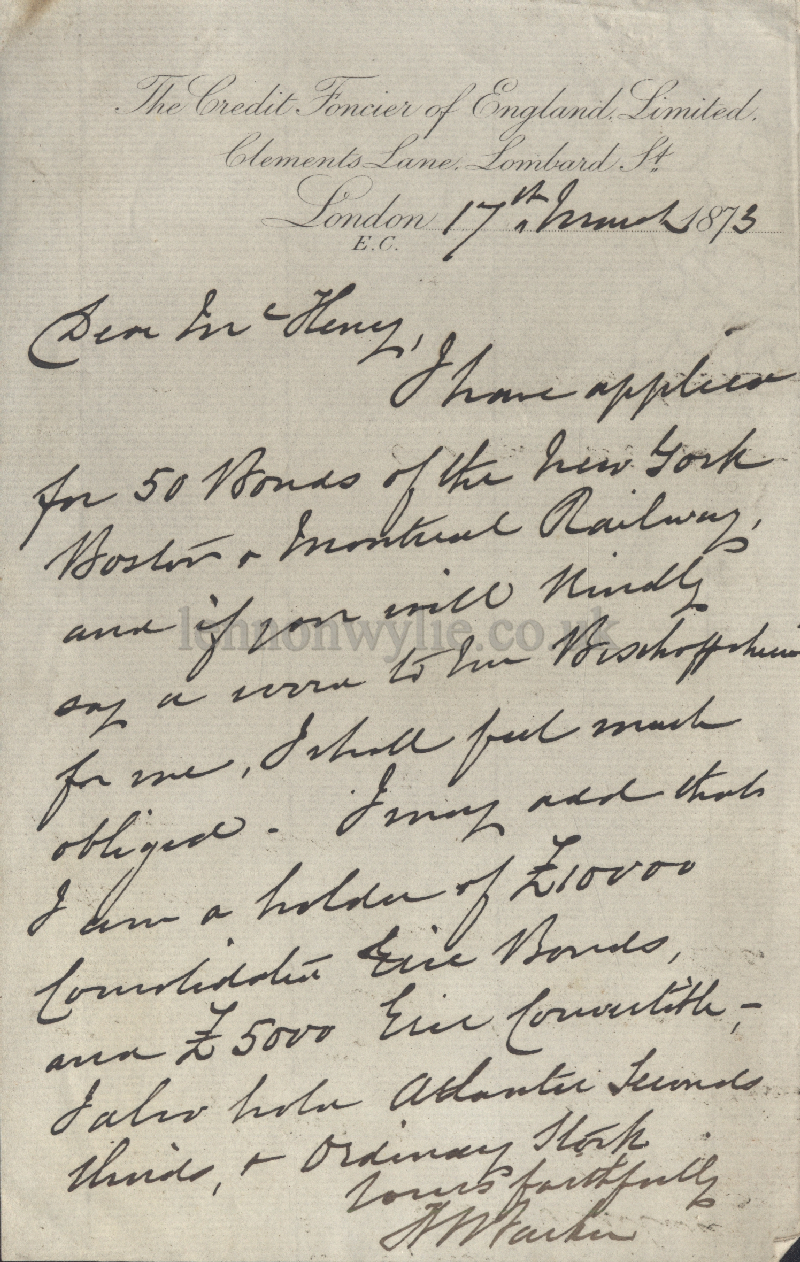 The Credit Foncier of England, Limited.
Clements Lane, Lombard St.
London 17th March 1873
E.C.
Dear McHenry,
I have applied
for 50 Bonds of the New York
Boston & Montreal Railway,
and if you will kindly
lennonwylie.co.uk
say a word to Mr Bischoffsheim
for me, I shall feel much
obliged. I may add that
I am a holder of £10000
Consolidated Erie Bonds,
and £5000 Erie Convertible, -
I also hold Atlantic Seconds
thirds, & Ordinary Stock
Yours faithfully